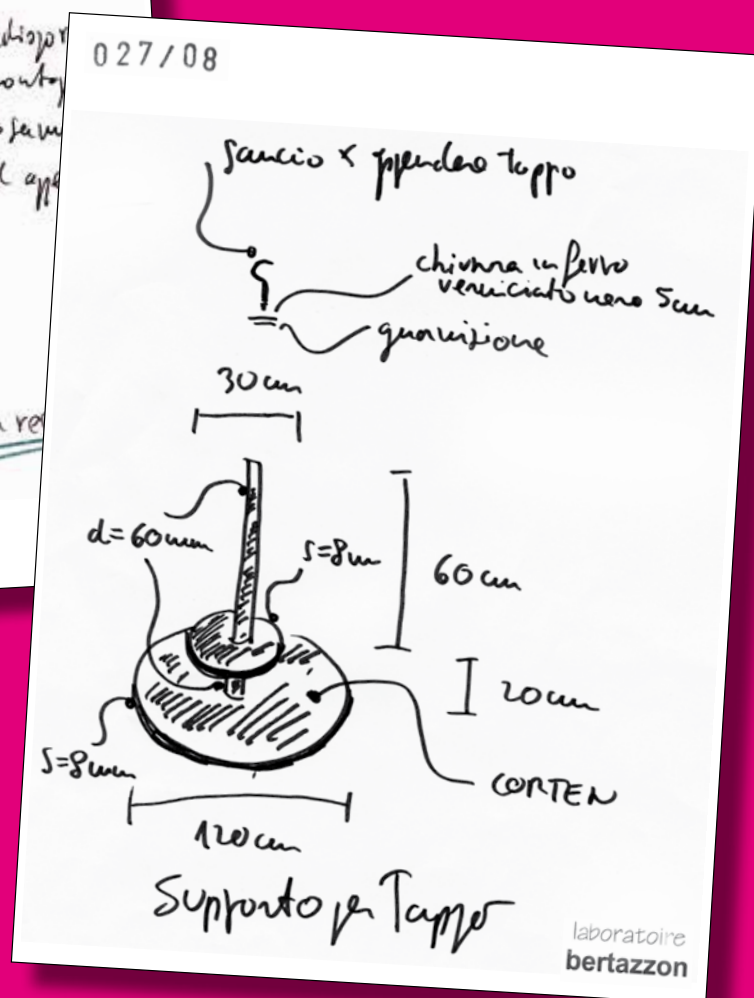 027/08
gancio x appendere tappo
chiusura in ferro
verniciato nero 5cm
guarnizione
30 cm
d=60mm
s=8mm
60 cm
20 cm
s=8mm
CORTEN
120 cm
Supporto per Tappo
laboratoire
bertazzon